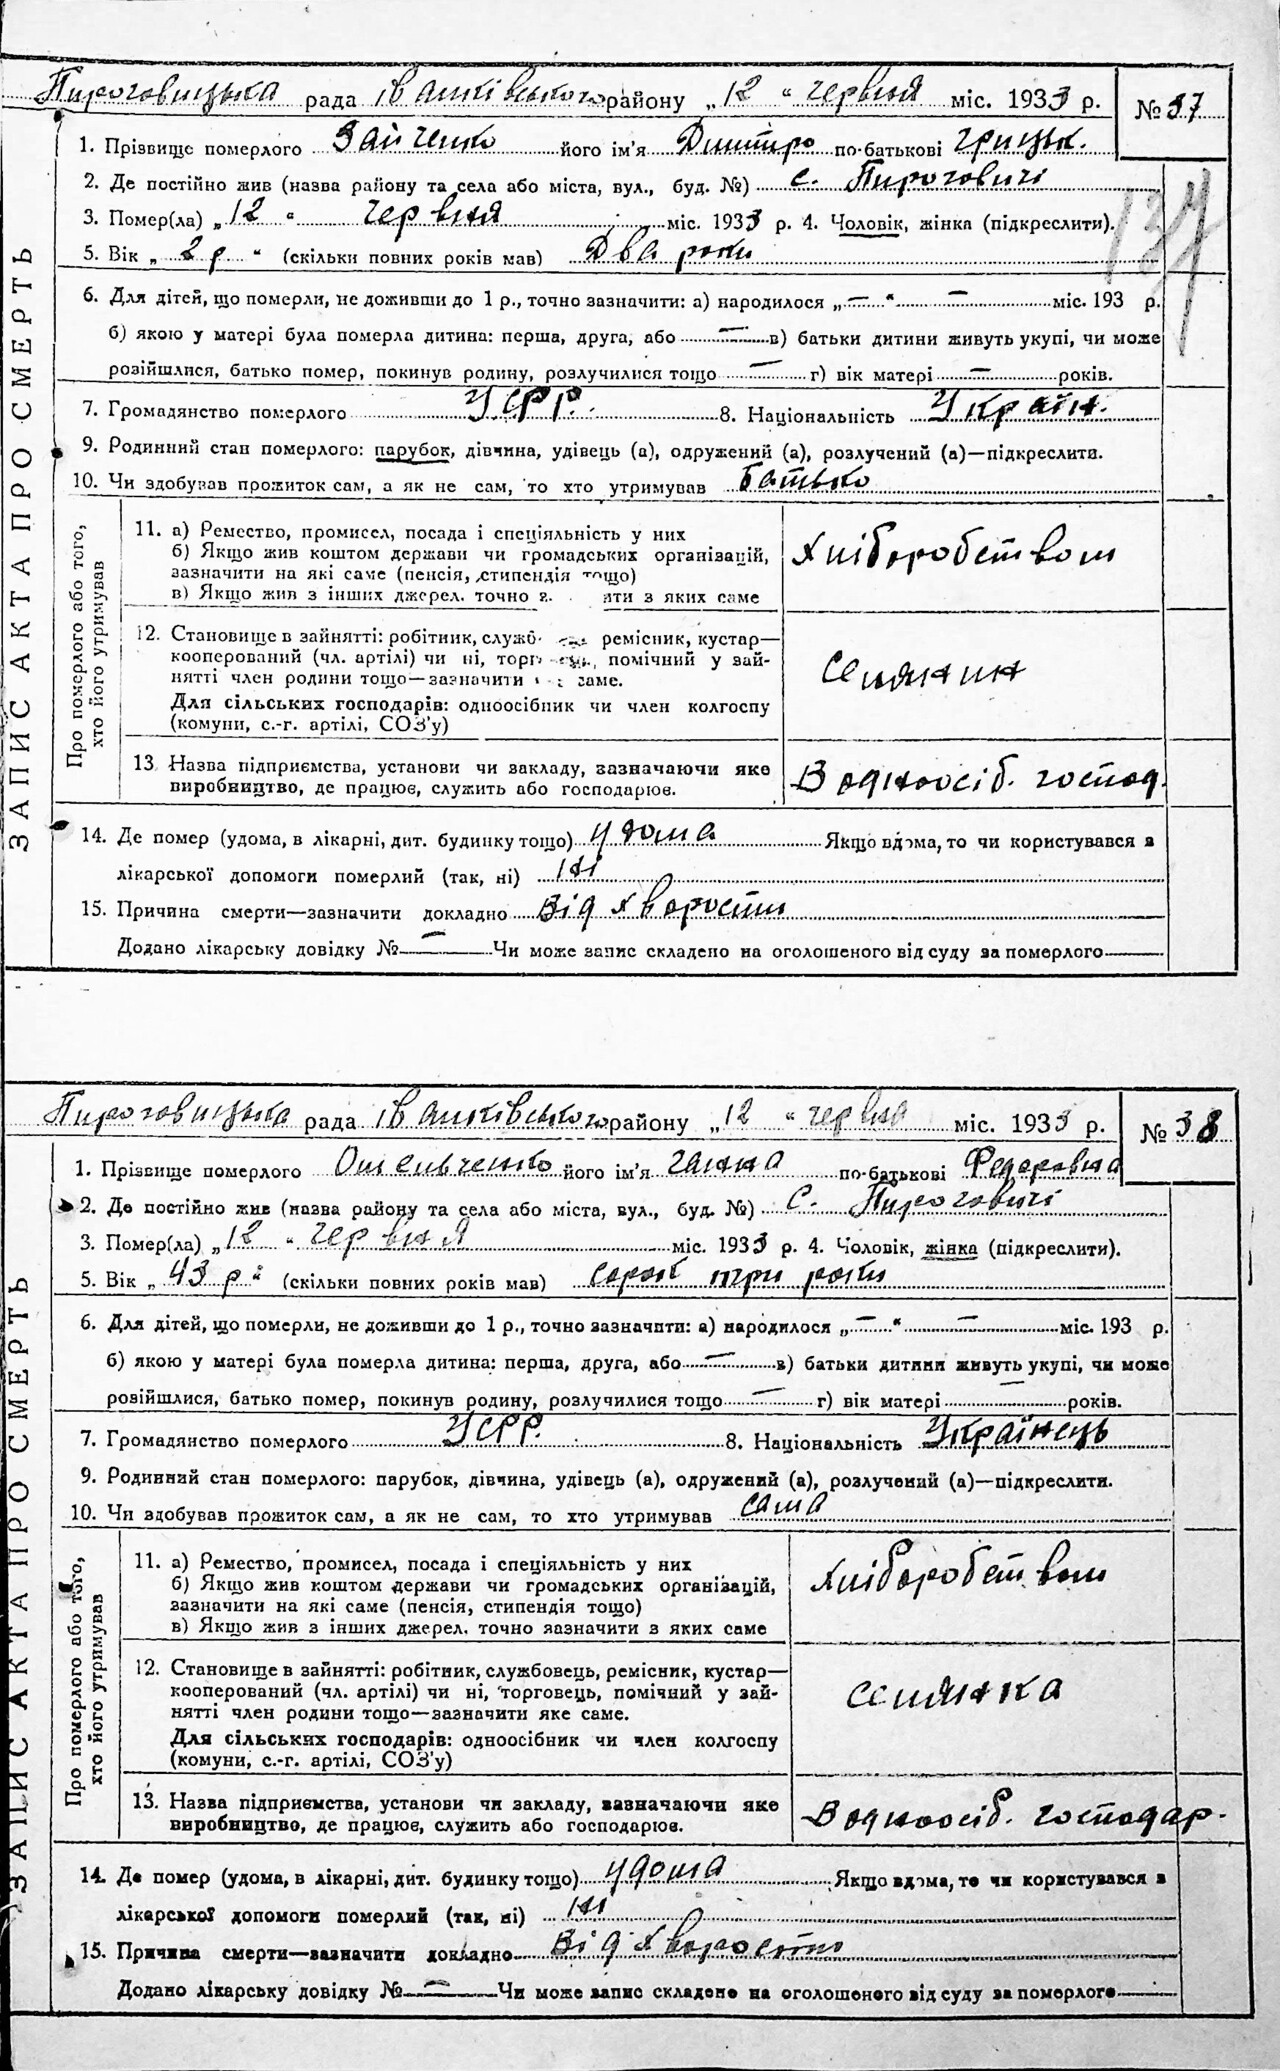 Пироговицька рада Іванківського району „12“ червня міс. 1933 р. № 37
1. Прізвище померлого Зайченко його ім'я Дмитро по-батькові Грицьк.
2. Де постійно жив (назва району та села або міста, вул., буд. №) с. Пироговичі
3. Помер(ла) „12“ червня міс. 1933 р. 4. Чоловік, жінка (підкреслити).
137
5. Вік „2 р“ (скільки повних років мав) Два роки
6. Для дітей, що померли, не доживши до 1 р., точно зазначити: а) народилося „—“ — міс. 193 р.
б) якою у матері була померла дитина: перша, друга, або — в) батьки дитини живуть укупі, чи може
розійшлися, батько помер, покинув родину, розлучилися тощо — г) вік матері — років.
7. Громадянство померлого УСРР. 8. Національність Україн.
9. Родинний стан померлого: парубок, дівчина, удівець (а), одружений (а), розлучений (а)—підкреслити.
10. Чи здобував прожиток сам, а як не сам, то хто утримував Батько
ЗАПИС АКТА ПРО СМЕРТЬ
Про померлого або того, хто його утримував
11. а) Ремество, промисел, посада і спеціяльність у них
б) Якщо жив коштом держави чи громадських організацій,
зазначити на які саме (пенсія, стипендія тощо)
в) Якщо жив з інших джерел. точно з яти з яких саме
Хліборобством
12. Становище в зайнятті: робітник, служб ремісник, кустар—
кооперований (чл. артілі) чи ні, торг помічний у зай-
нятті член родини тощо—зазначити саме.
Для сільських господарів: одноосібник чи член колгоспу
(комуни, с.-г. артілі, СОЗ'у)
селянин
13 Назва підприємства, установи чи закладу, зазначаючи яке
виробництво, де працює, служить або господарює.
В одноосіб. господ.
14. Де помер (удома, в лікарні, дит. будинку тощо) удома Якщо вдома, то чи користувався з
лікарської допомоги померлий (так, ні) ні
15. Причина смерти—зазначити докладно від хворости
Додано лікарську довідку № — Чи може запис складено на оголошеного від суду за померлого
Пироговицька рада Іванківського району „12“ червня міс. 1933 р. № 38
1. Прізвище померлого Омельченко його ім'я Ганна по-батькові Федоровна
2. Де постійно жив (назва району та села або міста, вул., буд. №) с. Пироговичі
3. Помер(ла) „12“ червня міс. 1933 р. 4. Чоловік, жінка (підкреслити).
5. Вік „43 р“ (скільки повних років мав) сорок три роки
6. Для дітей, що померли, не доживши до 1 р., точно зазначити: а) народилося „—“ — міс. 193 р.
б) якою у матері була померла дитина: перша, друга, або — в) батьки дитини живуть укупі, чи може
розійшлися, батько помер, покинув родину, розлучилися тощо — г) вік матері — років.
7. Громадянство померлого УСРР. 8. Національність Українець
9. Родинний стан померлого: парубок, дівчина, удівець (а), одружений (а), розлучений (а)—підкреслити.
10. Чи здобував прожиток сам, а як не сам, то хто утримував сама
ЗАПИС АКТА ПРО СМЕРТЬ
Про померлого або того, хто його утримував
11. а) Ремество, промисел, посада і спеціяльність у них
б) Якщо жив коштом держави чи громадських організацій,
зазначити на які саме (пенсія, стипендія тощо)
в) Якщо жив з інших джерел. точно зазначити з яких саме
Хліборобством
12. Становище в зайнятті: робітник, службовець, ремісник, кустар—
кооперований (чл. артілі) чи ні, торговець, помічний у зай-
нятті член родини тощо—зазначити яке саме.
Для сільських господарів: одноосібник чи член колгоспу
(комуни, с.-г. артілі, СОЗ'у)
селянка
13. Назва підприємства, установи чи закладу, зазначаючи яке
виробництво, де працює, служить або господарює.
В одноосіб. господар.
14. Де помер (удома, в лікарні, дит. будинку тощо) удома Якщо вдома, то чи користувався з
лікарської допомоги померлий (так, ні) ні
15. Причина смерти—зазначити докладно від хворости
Додано лікарську довідку № — Чи може запис складено на оголошеного від суду за померлого